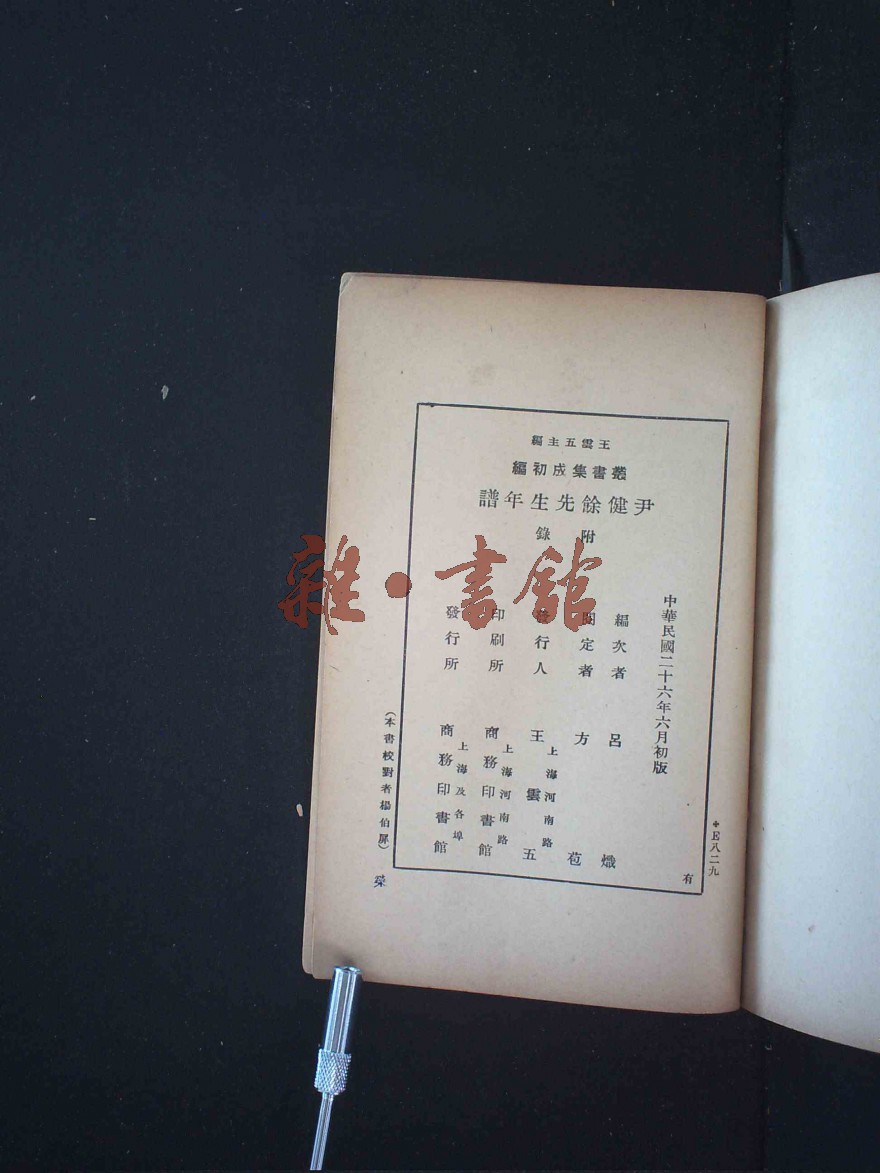 王雲五主編
叢書集成初編
尹健餘先生年譜
附錄
中華民國二十六年六月初版
編次者 呂熾
閱定者 方苞
發行人 王雲五
上海河南路
印刷所 商務印書館
上海河南路
發行所 商務印書館
上海及各埠
(本書校對者楊伯屏)
E八二九
有
雜·書館